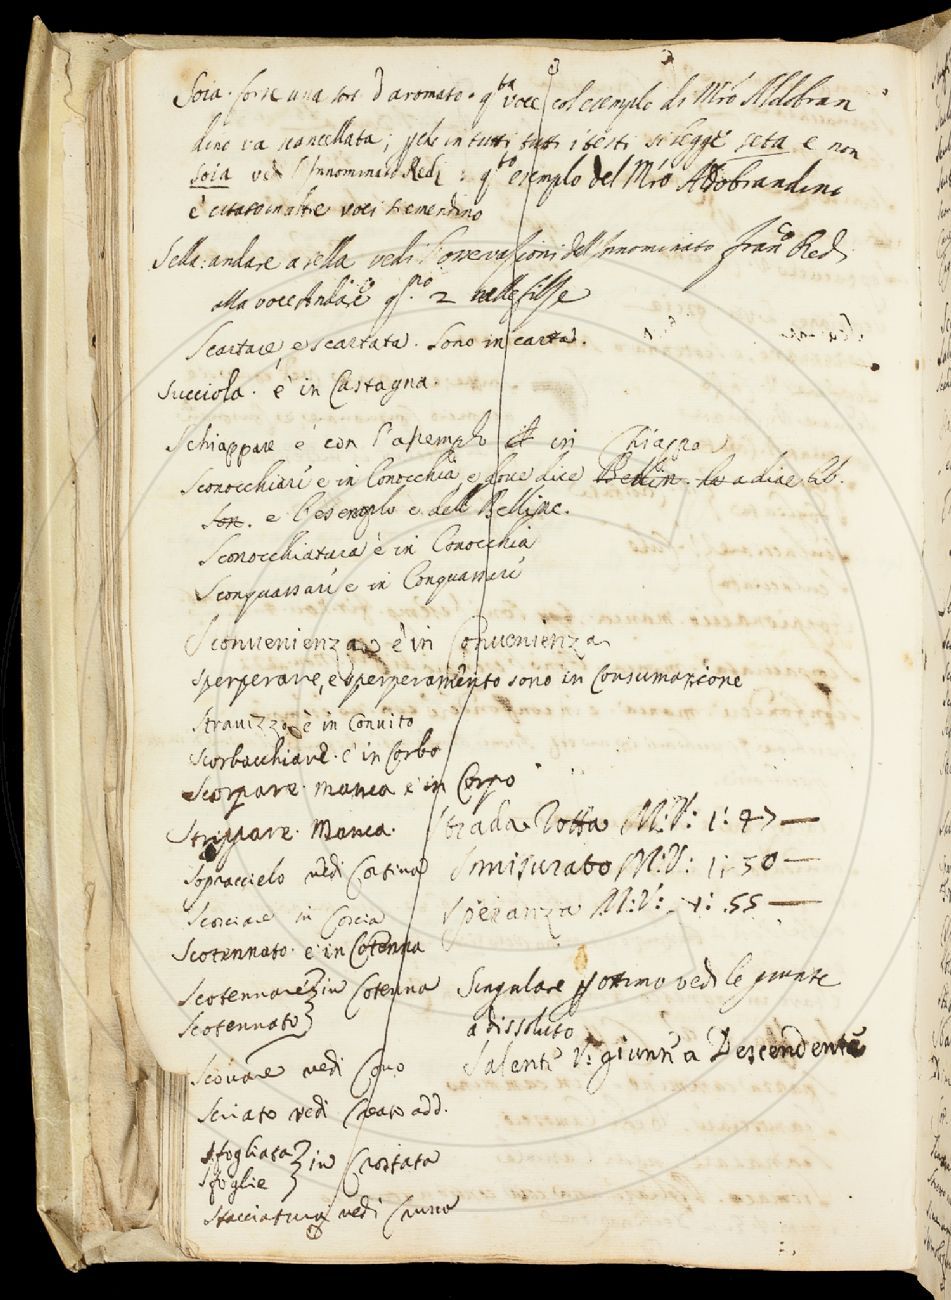 Soia. forse una sor. d'aromato. q.ta voce col esemplo di Mro Aldobran
dino va cancellata; p che in tutti tutti i testi si legge seta e non
soia ved. l'Innominato Redi: q.to esemplo del Mro Aldobrandino
è citato in altre voci
Sella: andare a sella vedi l'osservasioni dell Innominato Fran.co Redi
alla voce Andare 2 nelle filse
Scartare, e scartata. Sono in carta.
Succiola. è in Castagna.
Schiappare è con l'asemplo in
Sconocchiare è in Conocchia e dove dice Bellin. a dire
e l'esemplo è dell Bellinc.
Sconocchiatura è in Conocchia
Sconquassare è in Conquassare
Sconvenienza è in Convenienza
Sperperare, e sperperamento sono in Consumazione
Stravizzo è in Convito
Scorbacchiare. è in Corbo
Scorpare. manca è in Corpo
Strippare. Manca.
Sopraccielo vedi Cortina
Scorciare in Corcia
Scotennato. è in Cotenna
Scotennare } in Cotenna
Scotennato }
Scovare vedi Covo
Scriato vedi Creato add.
Sfogliata } in Crostata
Sfoglie }
Stacciatura vedi Crusca
Strada Rotta M:V: 1: 47 —
Smisurato M:V: 1: 50 —
Speranza M:V: 1: 55 —
Singulare p ottimo vedi le giunte
a dissoluto
V: giunte a Descendente